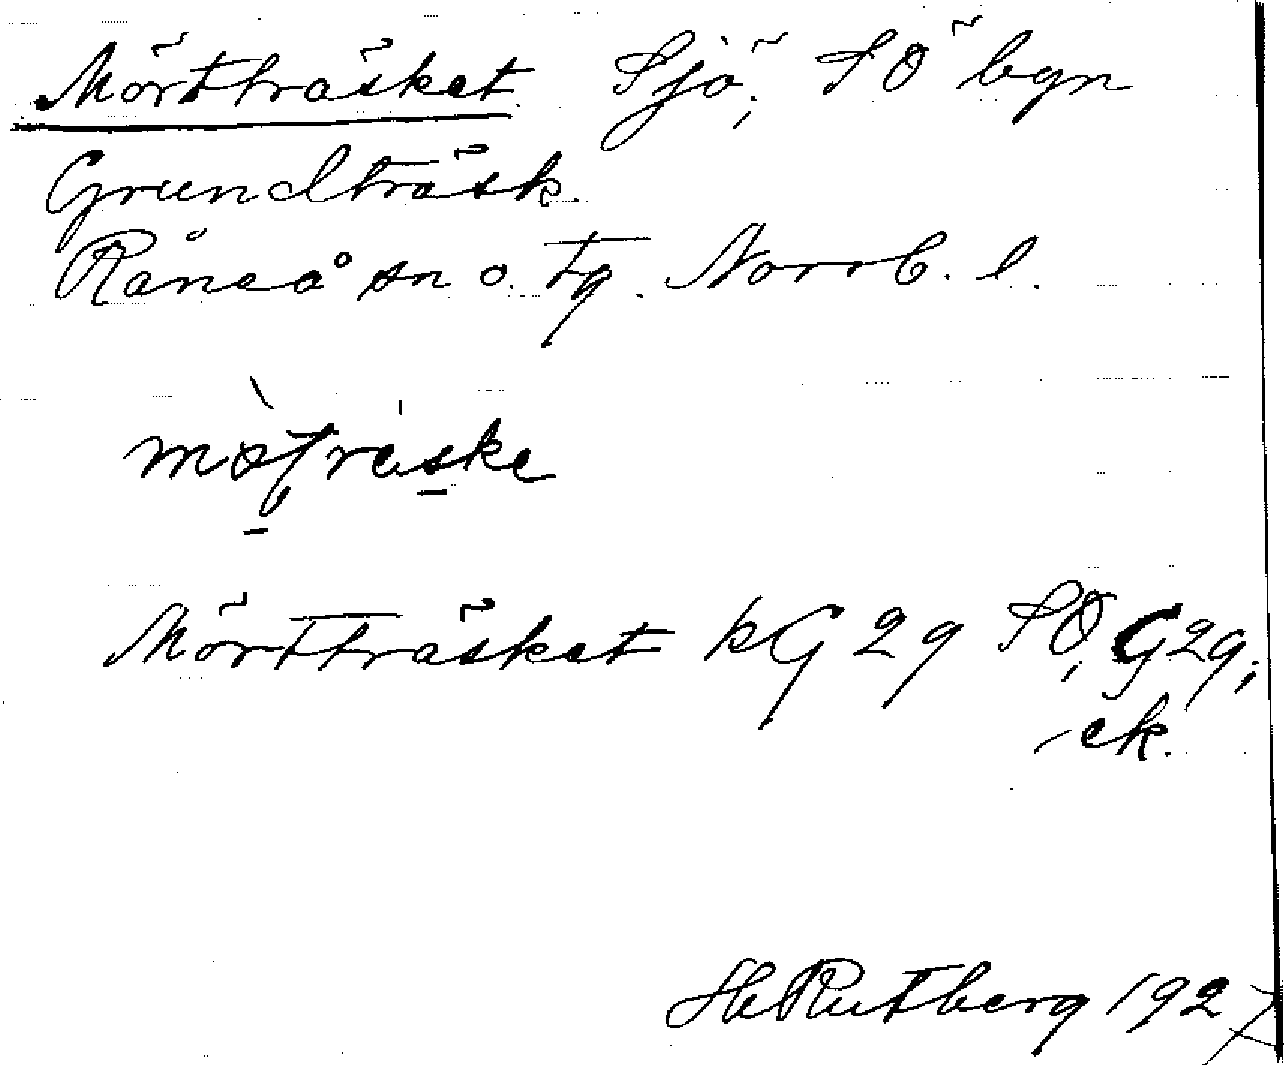 Mörtträsket Sjö, SÖ bgn
Grundträsk.
Råneå sn o. tg. Norrb. l.
Mörtträsket kG 29 SO, G29,
-ek.
H Rutberg 1927